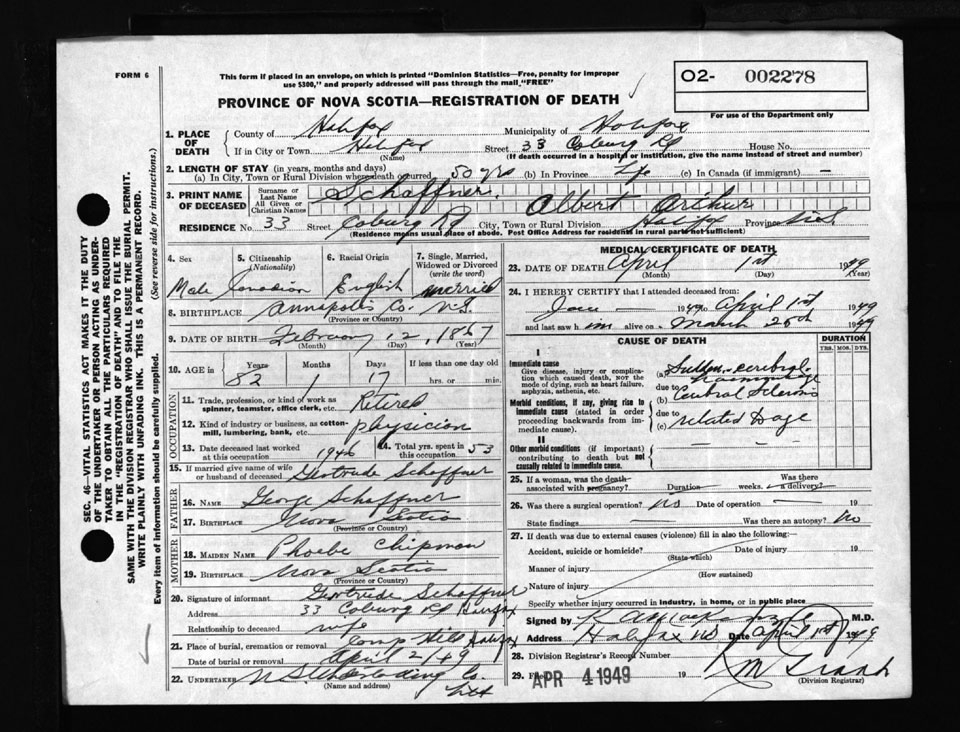 FORM 6
This form if placed in an envelope, on which is printed "Dominion Statistics—Free, penalty for improper
use $300," and properly addressed will pass through the mail "FREE"
PROVINCE OF NOVA SCOTIA—REGISTRATION OF DEATH
O2- 002278
For use of the Department only
SEC. 46—VITAL STATISTICS ACT MAKES IT THE DUTY
OF THE UNDERTAKER OR PERSON ACTING AS UNDER-
TAKER TO OBTAIN ALL THE PARTICULARS REQUIRED
IN THE "REGISTRATION OF DEATH" AND TO FILE THE
SAME WITH THE DIVISION REGISTRAR WHO SHALL ISSUE THE BURIAL PERMIT.
WRITE PLAINLY WITH UNFADING INK. THIS IS A PERMANENT RECORD.
Every item of information should be carefully supplied. (See reverse side for instructions.)
1. PLACE OF DEATH
County of Halifax Municipality of Halifax
If in City or Town Halifax Street 33 Coburg Rd House No.
(Name) (If death occurred in a hospital or institution, give the name instead of street and number)
2. LENGTH OF STAY (in years, months and days)
(a) In City, Town or Rural Division where death occurred 50 yrs (b) In Province Life (c) In Canada (if immigrant) —
3. PRINT NAME OF DECEASED
Surname or Last Name Schaffner
All Given or Christian Names Albert Arthur
RESIDENCE No. 33 Street Coburg Rd City, Town or Rural Division Halifax Province
(Residence means usual place of abode. Post Office Address for residents in rural parts not sufficient)
4. Sex 5. Citizenship (Nationality) 6. Racial Origin 7. Single, Married, Widowed or Divorced (write the word)
Male Canadian English Married
8. BIRTHPLACE Annapolis Co. N.S.
(Province or Country)
9. DATE OF BIRTH February 2, 1867
(Month) (Day) (Year)
10. AGE in Years Months Days If less than one day old
82 1 17 hrs. or min.
OCCUPATION
11. Trade, profession, or kind of work as
spinner, teamster, office clerk, etc. Retired
12. Kind of industry or business, as cotton-
mill, lumbering, bank, etc. physician
13. Date deceased last worked
at this occupation 1946
14. Total yrs. spent in
this occupation 53
15. If married give name of wife
or husband of deceased Gertrude Schaffner
FATHER
16. Name George Schaffner
17. Birthplace Nova Scotia
(Province or Country)
MOTHER
18. Maiden Name Phoebe Chipman
19. Birthplace Nova Scotia
(Province or Country)
20. Signature of informant Gertrude Schaffner
Address 33 Coburg Rd Halifax
Relationship to deceased wife
21. Place of burial, cremation or removal Camp Hill Halifax
Date of burial or removal April 2/49
22. Undertaker N.S. Undertaking Co.
(Name and address) Hfx
MEDICAL CERTIFICATE OF DEATH
23. DATE OF DEATH April 1st 1949
(Month) (Day) (Year)
24. I HEREBY CERTIFY that I attended deceased from:
Jan — 1949 to April 1st 1949
and last saw him alive on March 26th 1949
CAUSE OF DEATH
DURATION
YRS. MOS. DYS.
I
Immediate cause
Give disease, injury or complica-
tion which caused death, not the
mode of dying, such as heart failure,
asphyxia, asthenia, etc.
(a) Sudden cerebral
haemorrhage
due to
Morbid conditions, if any, giving rise to
immediate cause (stated in order
proceeding backwards from im-
mediate cause).
(b) Cerebral Sclerosis
due to
(c) related to age
II
Other morbid conditions (if important)
contributing to death but not
causally related to immediate cause.
25. If a woman, was the death
associated with pregnancy? Duration weeks. Was there a delivery?
26. Was there a surgical operation? No Date of operation — 19
State findings — Was there an autopsy? No
27. If death was due to external causes (violence) fill in also the following:
Accident, suicide or homicide? Date of injury 19
(State which)
Manner of injury
(How sustained)
Nature of injury
Specify whether injury occurred in industry, in home, or in public place
Signed by M.D.
Address Halifax NS Date April 1st 1949
28. Division Registrar's Record Number
29. Filed APR 4 1949 19
(Division Registrar)